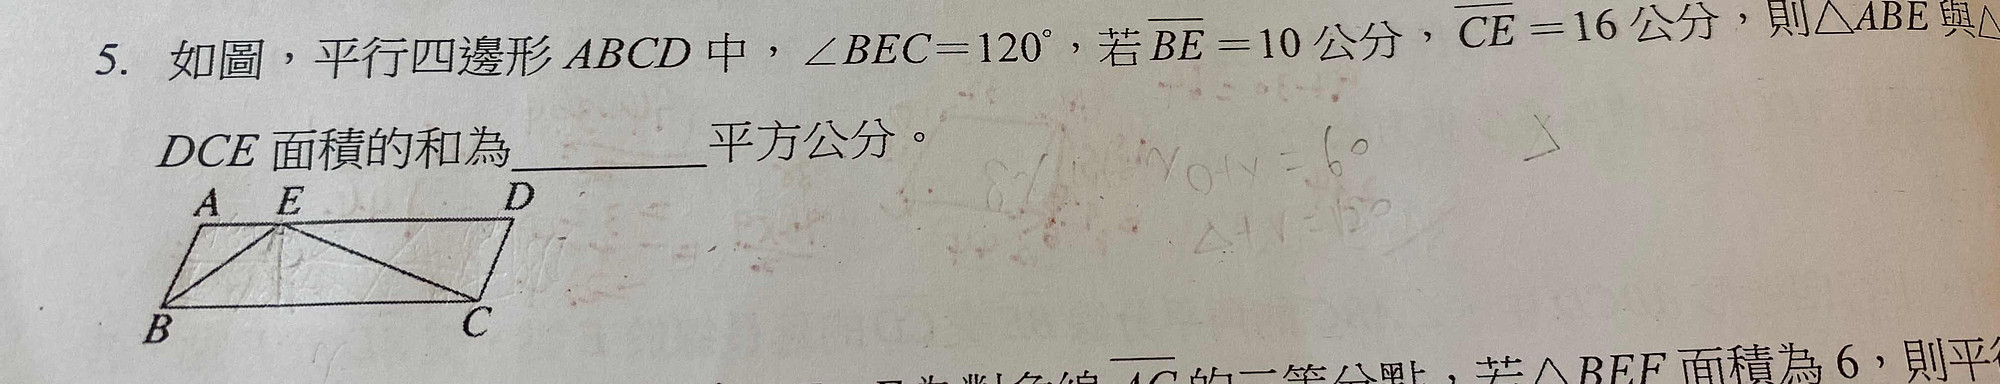 5. 如圖，平行四邊形 ABCD 中，∠BEC=120°，若 BE =10 公分，CE =16 公分，則△ABE 與△
DCE 面積的和為________平方公分。
A E D
B C
AC 的二等分點，若△BEF 面積為 6，則平行